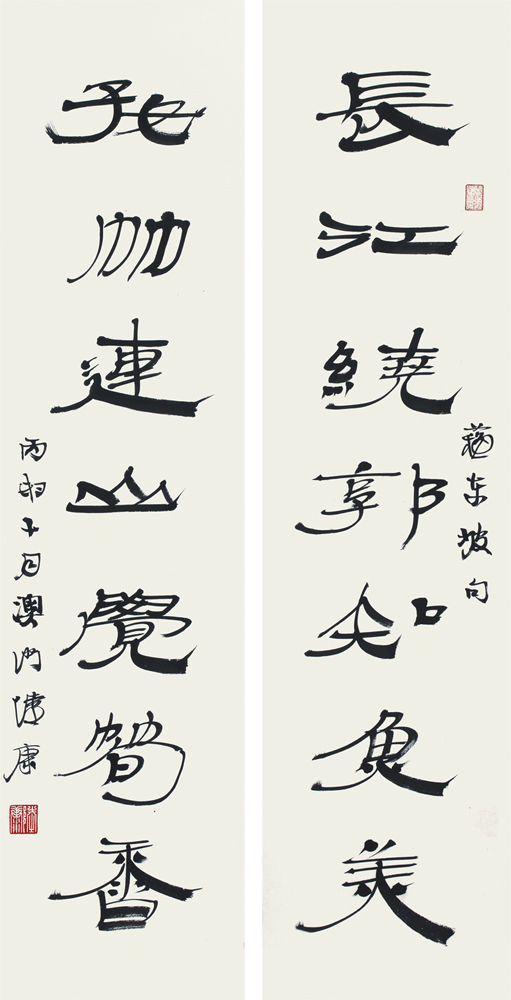 長江繞郭知魚美
蘓東坡句
好竹連山覺筍香
丙申十月澳門陸康